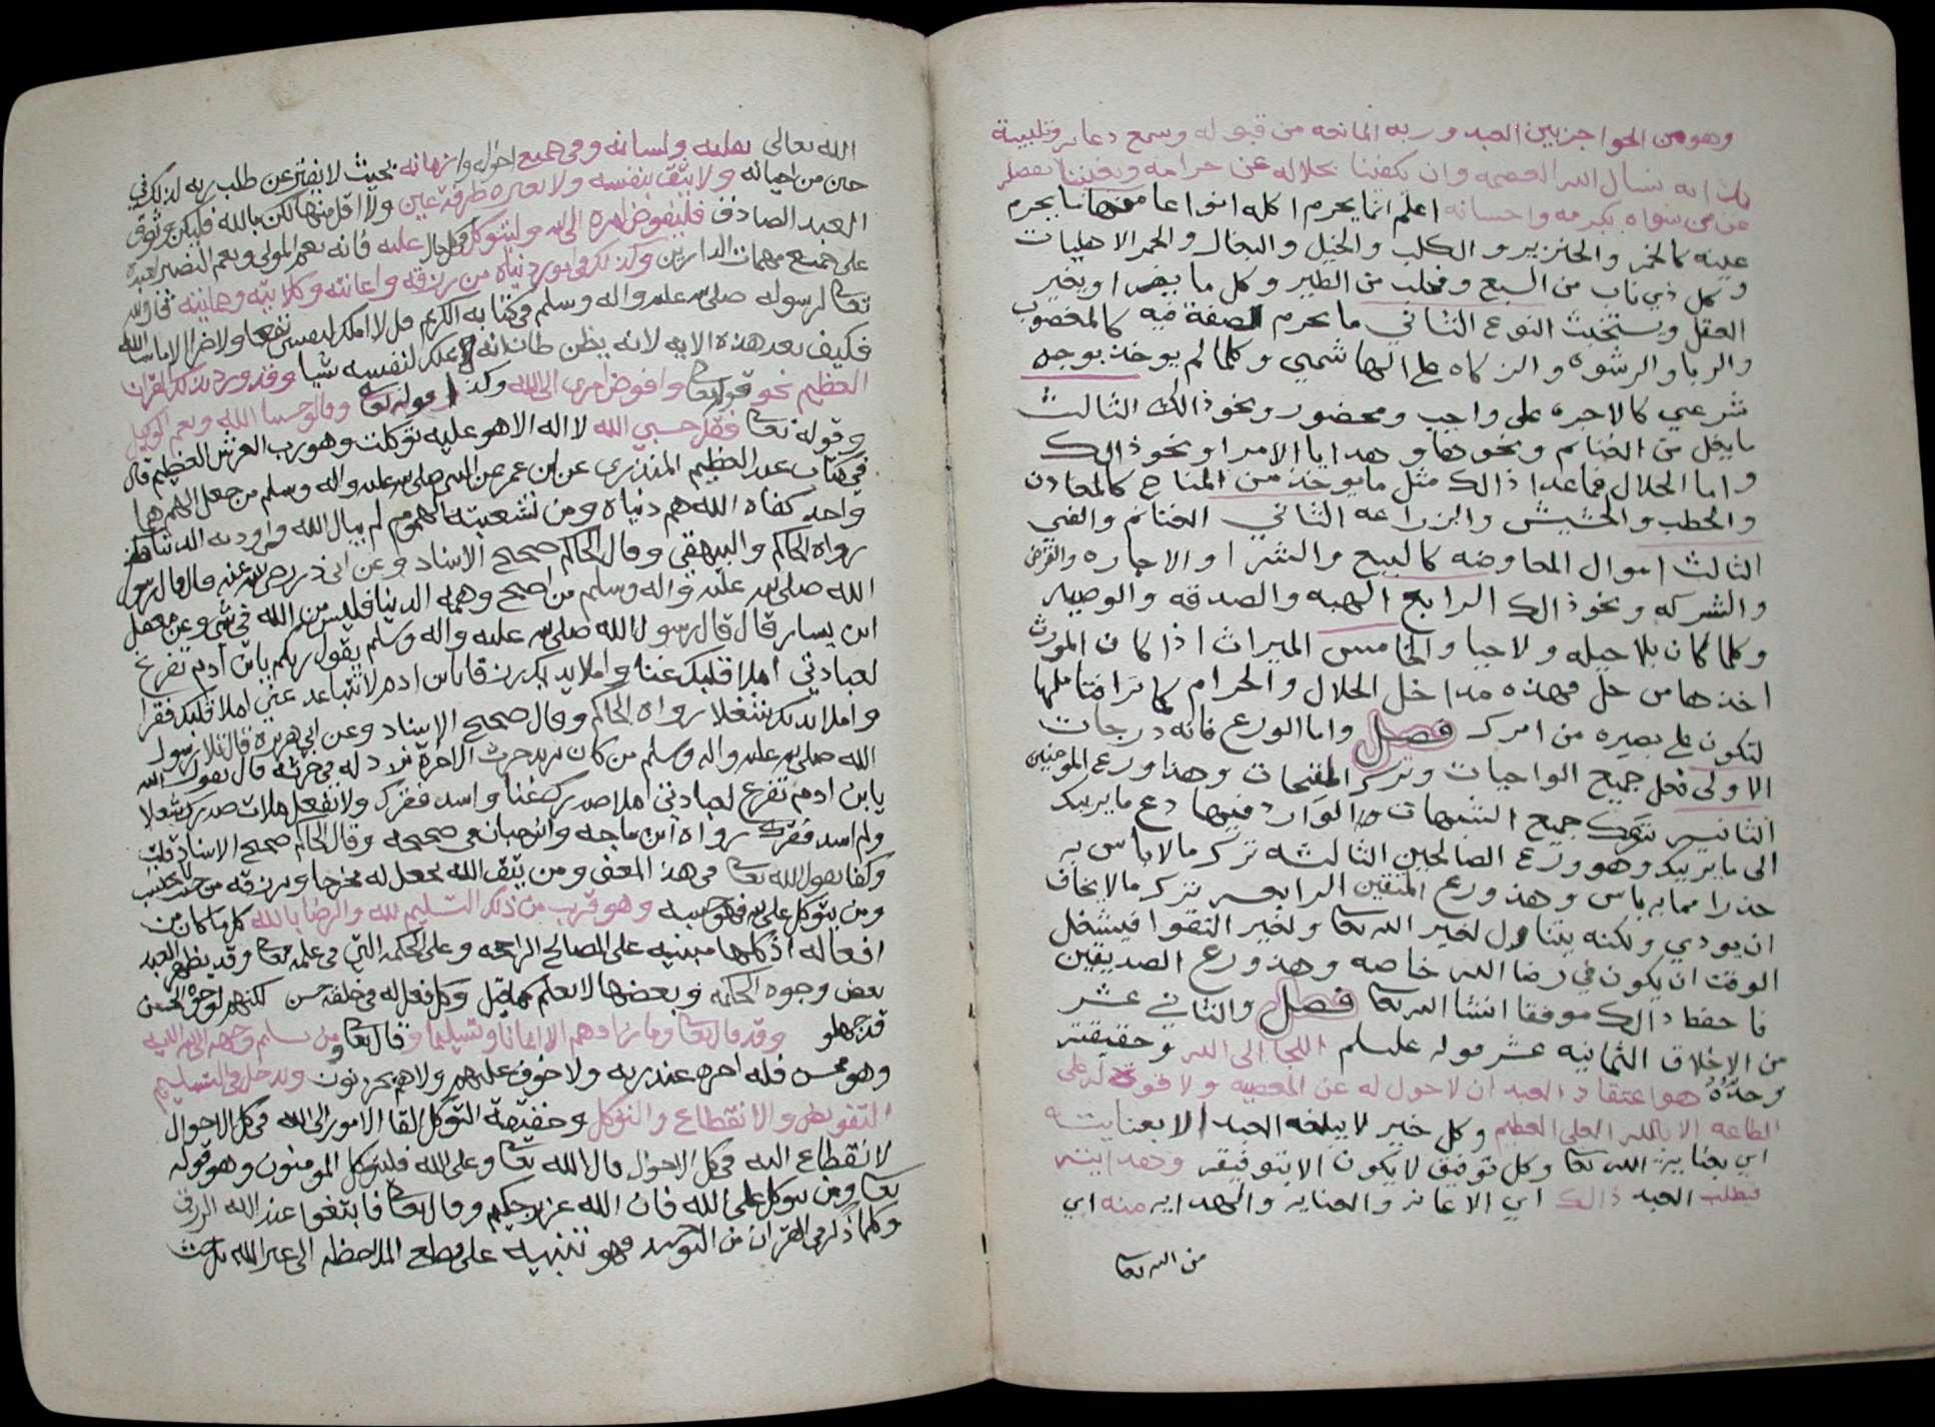 وهو من الحواجز بين العبد وربه المانعه من قبوله وسمع دعايه وتلبيية
نسال الله العصمه وان يكفينا بحلاله عن حرامه ويغنينا بفضله
عن من سواه بكرمه واحسانه اعلم انما يحرم اكله انواعا منها ما يحرم
عينه كالخمر والخنزير والكلب والخيل والبغال والحمر الاهليات
وكل ذي ناب من السبع ومخلب من الطير وكل ما يضر او يغير
العقل ويستخبث النوع الثاني ما يحرم لصفة فيه كالمغصوب
والربا والرشوه والزكاه على الهاشمي وكلما لم يوخذ بوجه
شرعي كالاجره على واجب ومحضور ونحو ذالك الثالث
ما يغل من الغنائم ونحوها وهدايا الامرا ونحو ذالك
واما الحلال فما عدا ذالك مثل ما يوخذ من المباح كالمعادن
والحطب والحشيش والزراعه الثاني الغنائم والفي
الثالث اموال المعاوضه كالبيع والشرا والاجاره والقرض
والشركه ونحو ذالك الرابع الهبه والصدقه والوصيه
وكلما كان بلا حيله ولا حيا والخامس الميراث اذا كان المورث
اخذها من حل فهذه مداخل الحلال والحرام كما ترا فتاملها
لتكون على بصيره من امرك فصل واما الورع فانه درجات
الاولى فعل جميع الواجبات وترك المقبحات وهذا ورع المومنين
الثانيه تترك جميع الشبهات والوارد فيها دع ما يريبك
الى ما لا يريبك وهو ورع الصالحين الثالثه ترك ما لا باس به
حذرا مما به باس وهذ ورع المتقين الرابعه ترك ما لا يخاف
ان يودي ولكنه يتناول لغير الله تعا ولغير التقوا فيشغل
الوقت ان يكون في رضا الله خاصه وهذ ورع الصديقين
فاحفظ ذالك موفقا انشا الله تعا فصل والثاني عشر
من الاخلاق الثمانيه عشر قوله عليلم اللجا الى الله وحقيقته
وحده هو اعتقاد العبد ان لا حول له عن المعصيه ولا قوة له على
الطاعه الا بالله العلي العظيم وكل خير لا يبلغه العبد الا بعنايته
اي بعناية الله تعا وكل توفيق لا يكون الا بتوفيقه وهدايته
فطلب العبد ذالك اي الاعانه والعنايه والهدايه منه اي
من الله تعا
الله تعالى بقلبه ولسانه وفي جميع احواله وازمانه بحيث لا يفتر عن طلب ربه لذلك في
حين من احيانه ولا يثق بنفسه ولا بغيره طرفة عين ولا اقل منها لكن بالله فليكن وثوق
العبد الصادق فليفوض امره الى الله وليتوكل في كل حال عليه فانه نعم المولى ونعم النصير
على جميع مهمات الدارين وكذلك في امور دنياه من رزقه واعانته وكلايته وهدايته
تعا لرسوله صلى الله عليه واله وسلم في كتابه الكريم قل لا املك لنفسي نفعا ولا ضرا الا ما شا الله
فكيف بعد هذه الايه لانه يظن ظان انه يملك لنفسه شيا وقد ورد بذلك القران
العظيم نحو قوله تعا وافوض امري الى الله وكذا قوله تعا وقالو حسبنا الله ونعم الوكيل
وقوله تعا فقل حسبي الله لا اله الا هو عليه توكلت وهو رب العرش العظيم قال
في كتاب عبد العظيم المنذري عن ابن عمر عن النبي صلى الله عليه واله وسلم من جعل الهم هما
واحد كفاه الله هم دنياه ومن تشعبته الهموم لم يبال الله في اي اودية الدنيا هلك
رواه الحاكم والبيهقي وقال الحاكم صحيح الاسناد وعن ابي ذر رضي الله عنه قال قال رسول
الله صلى الله عليه واله وسلم من اصبح وهمه الدنيا فليس من الله في شي وعن معقل
ابن يسار قال قال رسول الله صلى الله عليه واله وسلم يقول ربكم يا بن ادم تفرغ
لعبادتي املا قلبك غنا واملا يديك رزقا يا بن ادم لا تتباعد عني املا قلبك فقرا
واملا يديك شغلا رواه الحاكم وقال صحيح الاسناد وعن ابي هريرة قال تلا رسول
الله صلى الله عليه واله وسلم من كان يريد حرث الاخرة نزد له في حرثه قال يقول الله
يا بن ادم تفرغ لعبادتي املا صدرك غنا واسد فقرك ولا تفعل ملات صدرك شغلا
ولم اسد فقرك رواه ابن ماجه وابن حبان في صحيحه وقال الحاكم صحيح الاسناد قلت
وكفا بقول الله تعا في هذ المعنى ومن يتق الله يجعل له مخرجا ويرزقه من حيث لا يحتسب
ومن يتوكل على الله فهو حسبه وهو قريب من ذلك التسليم لله والرضا بالله كل ما كان من
افعاله اذ كلها مبنيه على المصالح الراجحه وعلى الحكمه التي في علمه تعا وقد يظهر للعبد
بعض وجوه الحكمه وبعضها لا يعلم كما قيل وكل فعل له في خلقه حسن لكنهم لوجوه الحسن
قد جهلو وقد قال تعا وما زادهم الا ايمانا وتسليما وقال تعا ومن يسلم وجهه الى الله
وهو محسن فله اجره عند ربه ولا خوف عليهم ولا هم يحزنون ويدخل في التسليم
التفويض والانقطاع والتوكل وحقيقة التوكل القا الامور الى الله في كل الاحوال
لانقطاع اليه في كل الاحوال قال الله تعا وعلى الله فليتوكل المومنون وهو قوله
تعا ومن يتوكل على الله فان الله عزيز حكيم وقال تعا فابتغوا عند الله الرزق
وكلما ذكر في القران من التوحيد فهو تنبيه على قطع الملاحظه الى غير الله